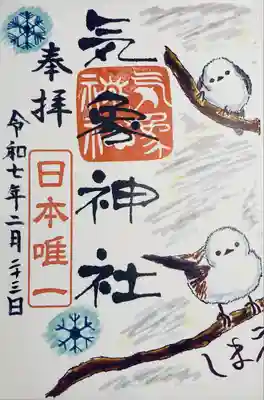 気象神社
気象神社
奉拝
日本唯一
令和七年二月二十三日
しま